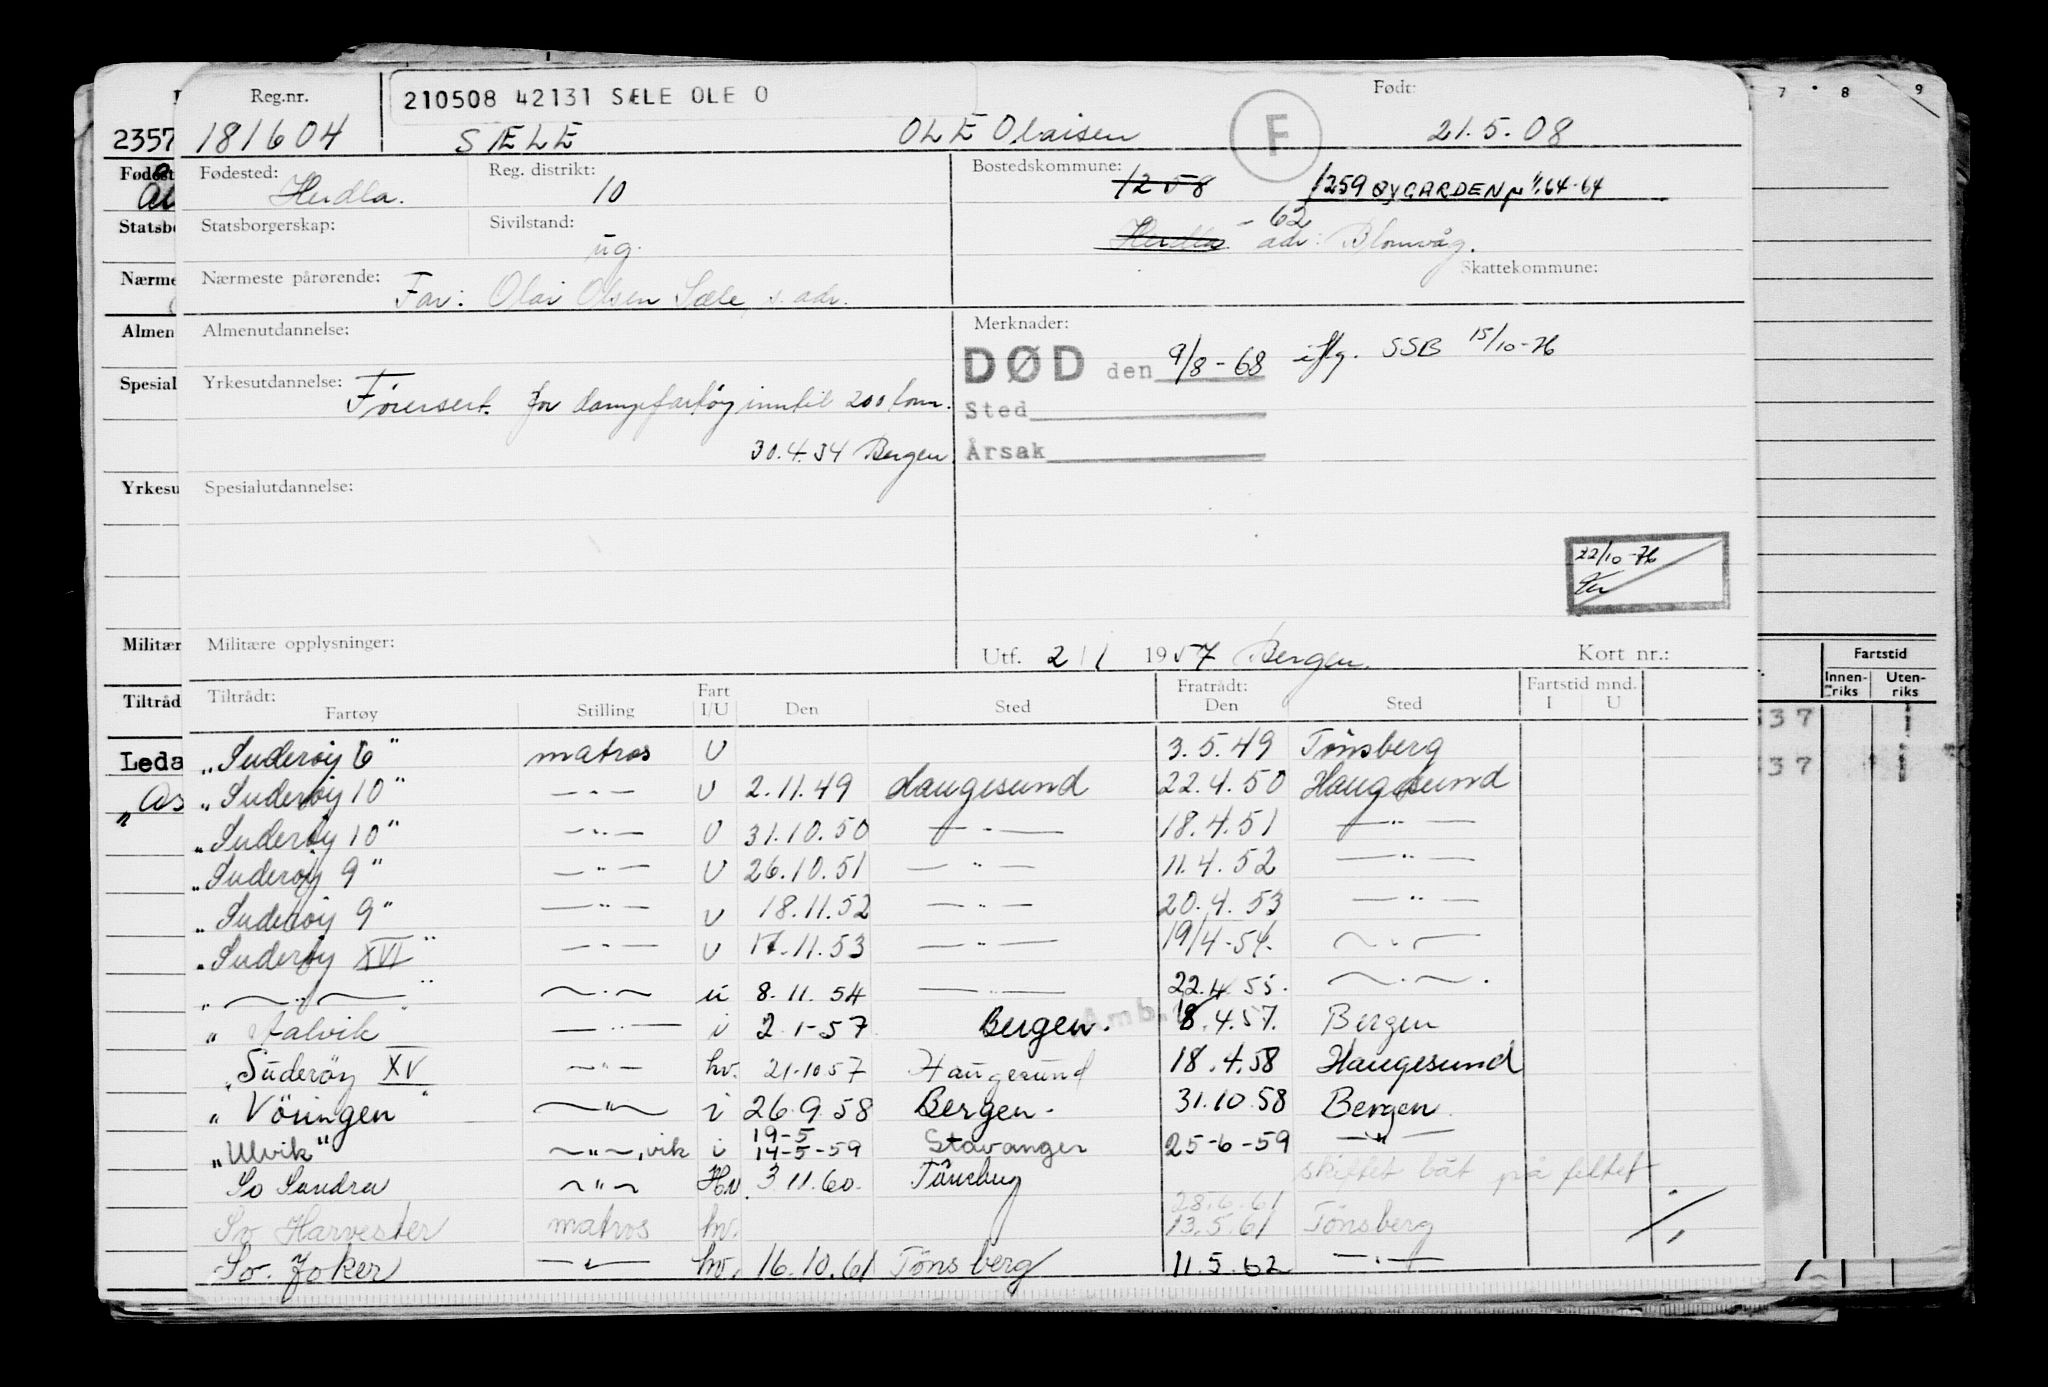 Reg.nr. 210508 42131 SÆLE OLE O Født:
181604 SÆLE OLE Olaisen F 21.5.08
Fødested: Herdla. Reg. distrikt: 10 Bostedskommune: 1258 1259 ØYGARDEN pr 1/1.64-64
Statsborgerskap: Sivilstand: ug. Herdla - 62 adr: Blomvåg.
Skattekommune:
Nærmeste pårørende: Far: Olai Olsen Sæle, s. adr.
Almenutdannelse: Merknader:
DØD den 9/8-68 iflg. SSB 15/10-76
Yrkesutdannelse: Førersert. for dampfartøy inntil 200 tonn.
Sted
30.4.34 Bergen
Årsak
Spesialutdannelse:
22/10-76
Militære opplysninger: Utf. 2/1 1957 Bergen. Kort nr.:
Tiltrådt: Fart Fratrådt: Fartstid mnd.
Fartøy Stilling I/U Den Sted Den Sted I U
„Suderøy 6" matros U 3.5.49 Tønsberg
„Suderøy 10" —"— U 2.11.49 Haugesund 22.4.50 Haugesund
„Suderøy 10" —"— U 31.10.50 —"— 18.4.51 —"—
„Suderøy 9" —"— U 26.10.51 —"— 11.4.52 —"—
„Suderøy 9" —"— U 18.11.52 —"— 20.4.53 —"—
„Suderøy XVI" —"— U 17.11.53 —"— 19/4-54. —"—
„—"—" —"— u 8.11.54 —"— 22.4.55. —"—.
„Aalvik" —"— i 2.1-57 Bergen. 18.4.57. Bergen
„Suderøy XV" —"— hv. 21-10 57 Haugesund 18.4.58 Haugesund
„Vöringen" —"— i 26.9.58 Bergen. 31.10.58 Bergen
19-5
„Ulvik" —"—, vik i 14-5-59 Stavanger 25-6-59 —"—
So Sandra —"— Hv. 3.11.60. Tönsberg skiftet båt på feltet
28.6.61
So Harvester matros hv. 13.5.61 Tönsberg
So. Joker —"— hv. 16.10.61 Tönsberg 11.5.62 —"—
2357
Fødest
Statsbo
Nærme
Almen
Spesial
Yrkesu
Militær
Tiltråd
Leda
„As
7 8 9
Fartstid
Innenriks Utenriks
37
37